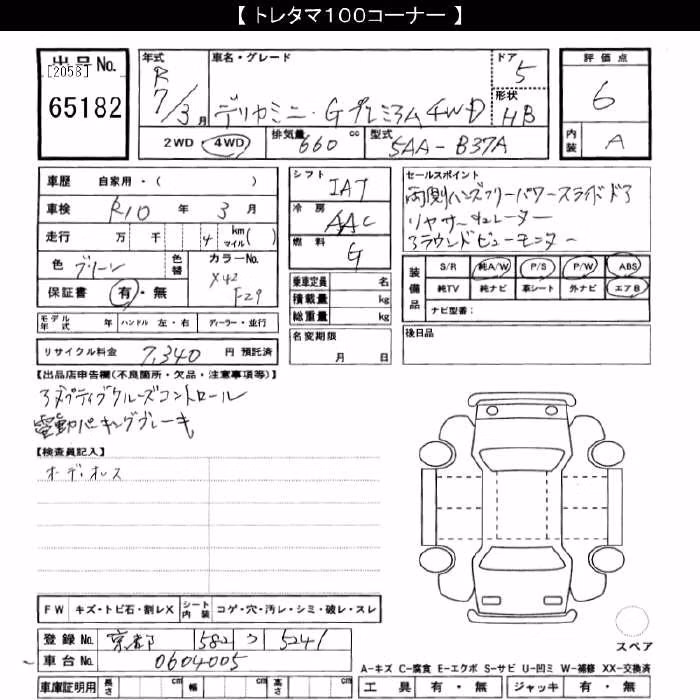 【 トレタマ100コーナー 】
出品No.
[2058]
65182
年式
R
7/3月
車名・グレード
デリカミニ・Gプレミアム4WD
ドア
5
形状
HB
評価点
6
内装
A
2WD 4WD
排気量
660 cc
型式
5AA-B37A
車歴 自家用・( )
車検 R10 年 3 月
走行 万 千 4 km マイル( )
色 グリーン
色替
カラーNo.
X42
F29
保証書 有・無
モデル年式 年 ハンドル 左・右 ディーラー・並行
リサイクル料金 7,340 円 預託済
シフト
IAT
冷房
AAC
燃料
G
乗車定員 名
積載量 kg
総重量 kg
名変期限
月 日
セールスポイント
両側ハンズフリーパワースライドドア
リヤサーキュレーター
アラウンドビューモニター
装備品
S/R 純A/W P/S P/W ABS
純TV 純ナビ 革シート 外ナビ エアB
ナビ型番:
後日品
【出品店申告欄(不良箇所・欠品・注意事項等)】
アダプティブクルーズコントロール
電動パーキングブレーキ
【検査員記入】
オーディオレス
FW キズ・トビ石・割レX シート内装 コゲ・穴・汚レ・シミ・破レ・スレ
登録No. 京都 582 つ 5241
車台No. 0604005
車庫証明用 長さ cm 幅 cm 高さ cm
スペア
A-キズ C-腐食 E-エクボ S-サビ U-凹ミ W-補修 XX-交換済
工具 有・無 ジャッキ 有・無